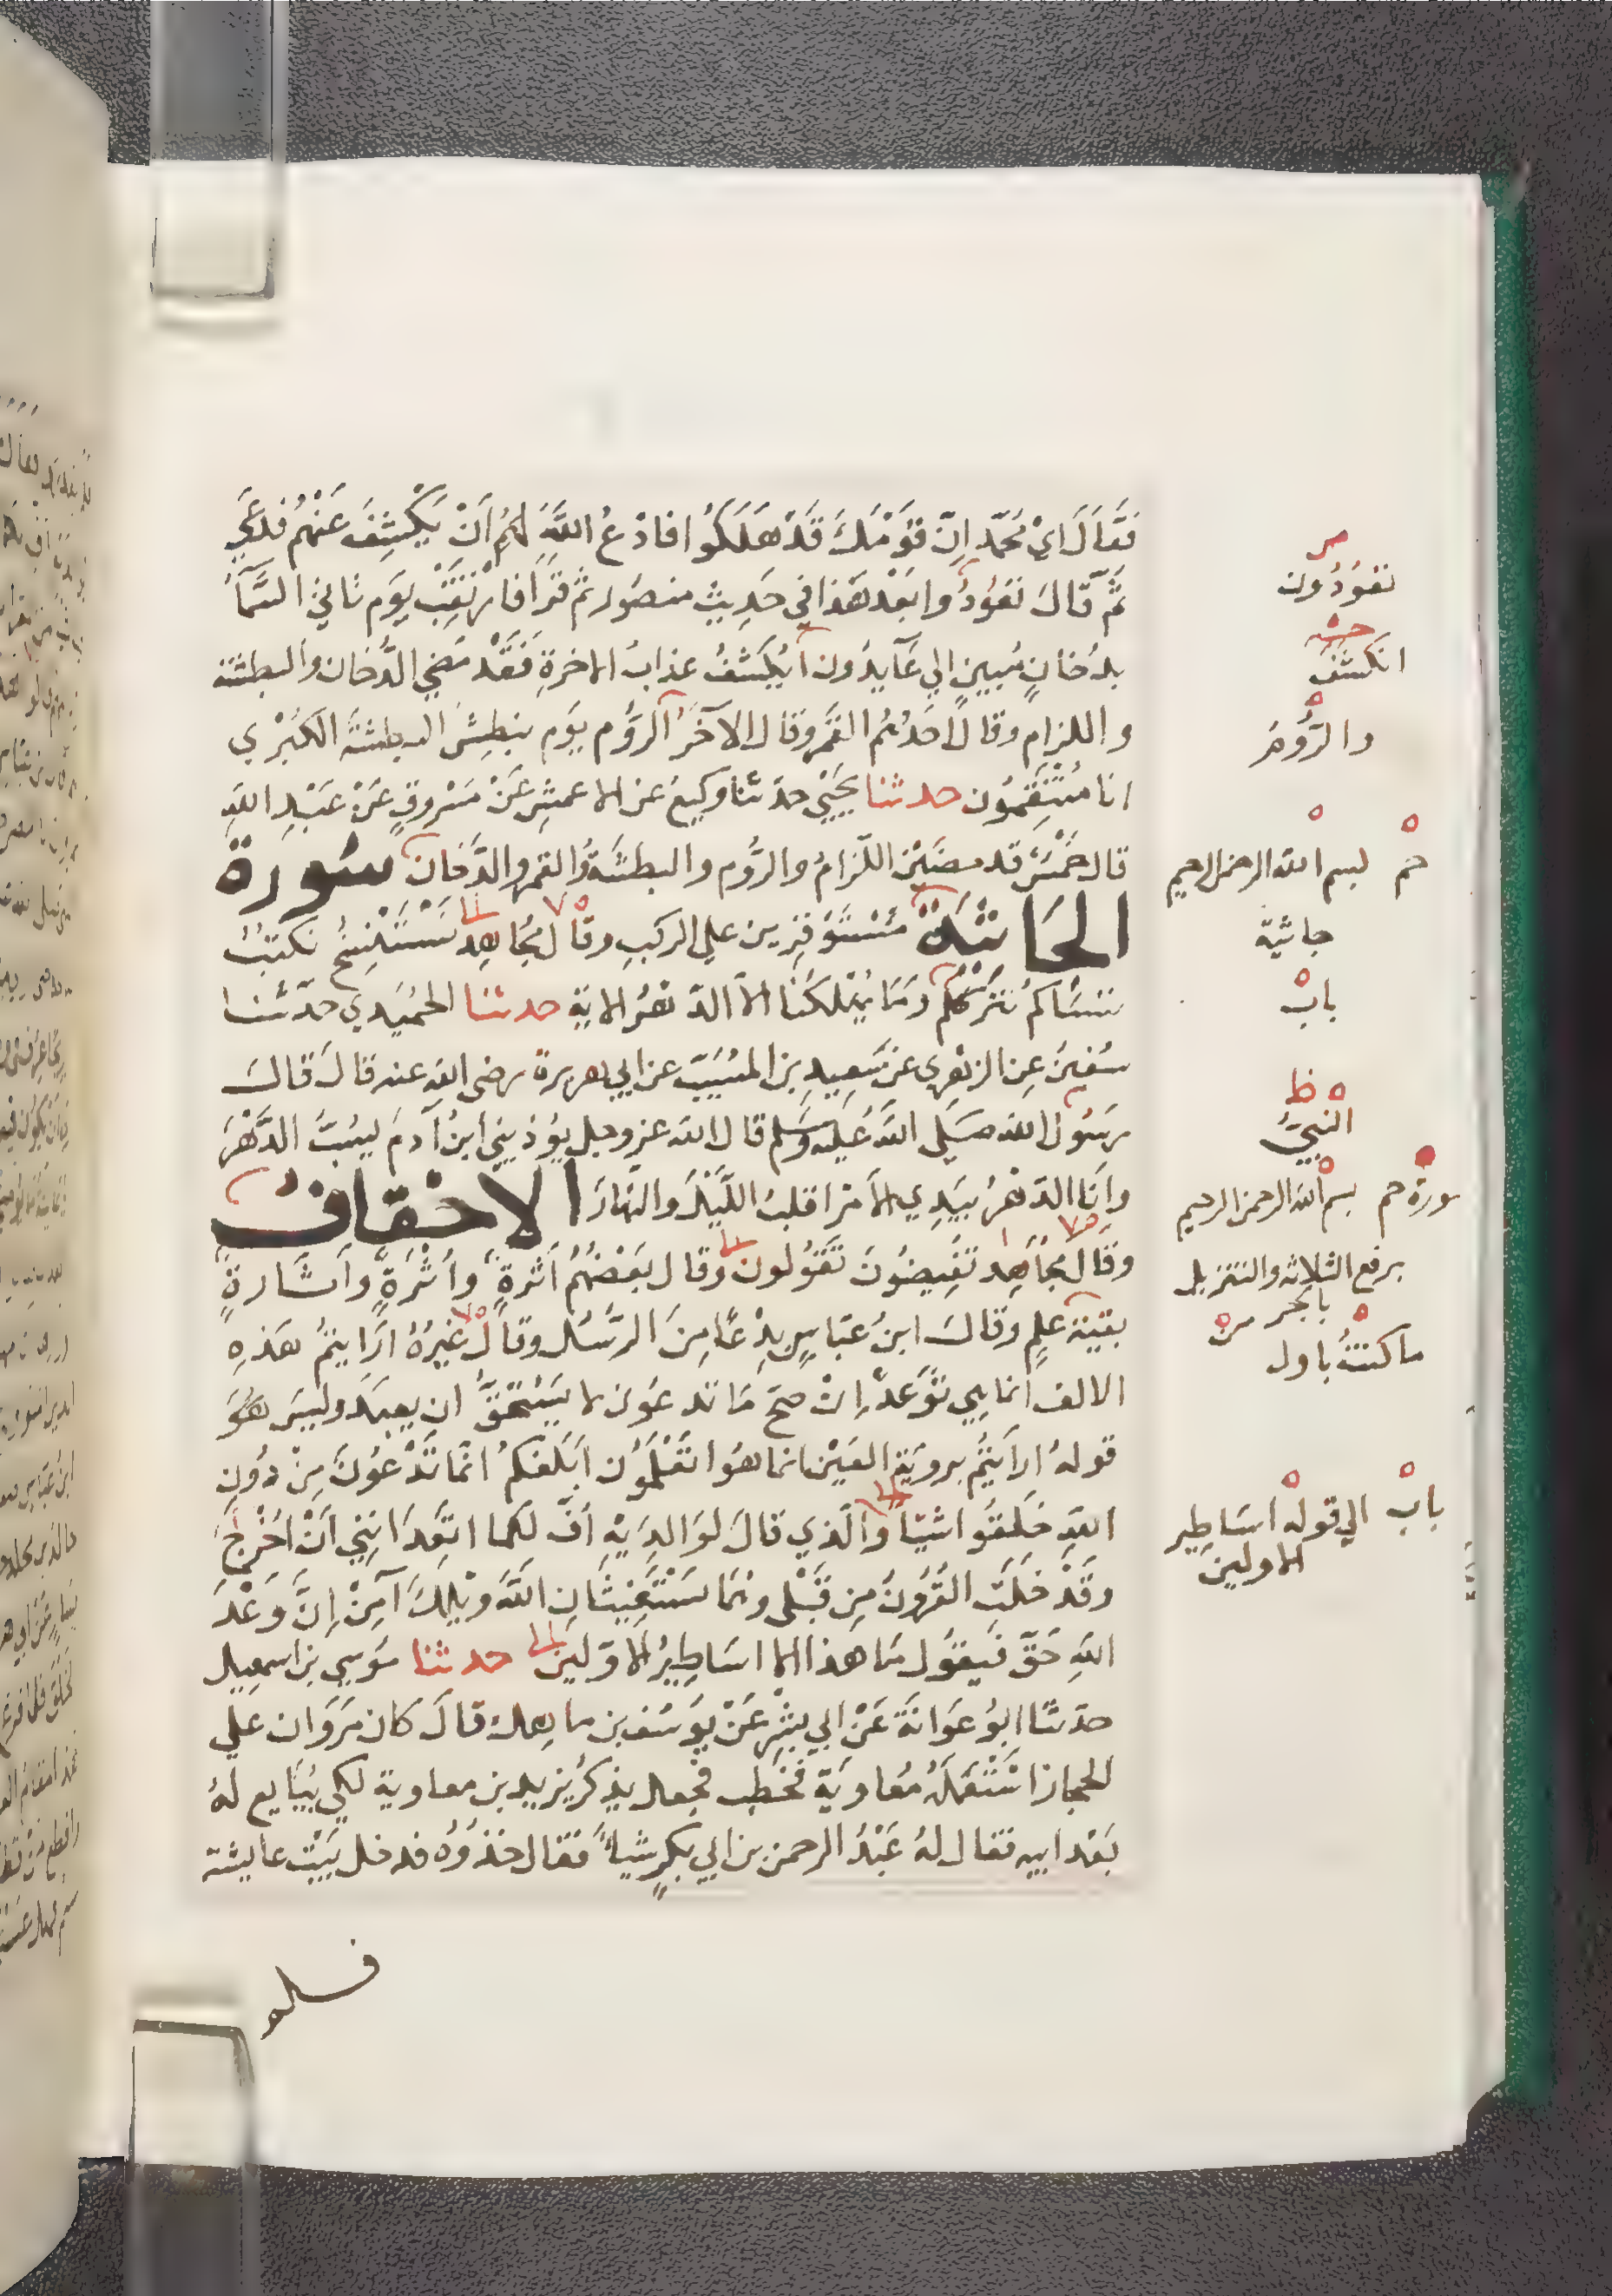 فَقَالَ اَيْ مُحَمّد اِنّ قَوْمَكَ قَدْ هَلَكُوا فادْعُ اللَّهَ لَهُمْ اَنْ يَكْشِفَ عَنْهُمْ فدعَي
ثُمَّ قَالَ تَعُودُوا بَعْد هَذا في حَدِيثِ منصُور ثم قَرَأ فارْتَقِبْ يَوم تاتي السَّمآءُ
بدُخانٍ مُبينٍ الي عَآيدُون اَيُكشَفُ عذابُ الاخرةِ فَقَدْ مَضي الدُّخان والبطشة
واللزام وقال احَدُهُم القمَر وقال الآخَرُ الرُّوم يوم نبطِشُ البطشةَ الكُبْري
انا مُنتَقِمُون حدثنا يحيَي حدثنا وكيعُ عن الاعمشِ عَنْ مَسْروقٍ عَنْ عَبْدِ اللهِ
قال خَمْسٌ قد مضَيْن اللّزامُ والرُّوم والبطشَةُ والقمر والدَّخان سُورة
الجَاثية مُسْتَوفِزين علي الركبِ وقال مُجَاهِد نَسْتَنْسِخُ نكتبُ
ننسَاكم نترُككم ومَا يُهْلكُنا الا الدّهْرُ الاية حدثنا الحُمَيدي حدثنا
سُفينَ عِن الزهري عن سَعيدِ بن المسُيَبّ عن ابي هريرة رضى الله عنه قال قَالَ
رسُول الله صَلي اللهُ عَليْه وَسَلم قال الله عز وجل يؤذيني ابنُ آدمَ يسُبّ الدَّهْرَ
وانَا الدّهرُ بيَدي الامْر اقلبُ اللّيْلَ والنهارَ الاحقاف
وقال مجَاهِد تفيضُونَ تقُولُون وقال بعَضُهُم اَثرةٍ واُثْرَةٍ وَاَثَارةٍ
بقيّة علمٍ وقالَ ابنُ عبَاسٍ بِدْعًا مِنَ الرُّسُل وقال غيرُهُ ارَايتمُ هَذهِ
الالف انما هي تَوَعّدٌ اِنْ صحّ مَا تدعَون لا يَسْتحَقُّ ان يعبدَ وليسَ هُوَ
قوله ارايْتُم برويَة العَيْن انما هُوَ اتَعْلَموُن اَبَلغكمْ انّ مَا تَدْعُونَ مِنْ دُونِ
اللهِ خَلَقُوا شيًا والذي قالَ لوَالِدَيْهِ اُفّ لكما اتَعِدَانِني اَنْ اُخْرجَ
وقَدْ خَلَتِ القُرُونُ مِن قَبْلي وهُمَا يَسْتَغِيثَانِ اللّهَ وَيْلِكَ آمِنْ اِنَّ وَعْدَ
اللهِ حَقّ فَيقُول مَا هذا الا اسَاطِيرُ الاوّلين حدثنا مُوسي بن اسمعيل
حدثنا ابوُ عَوَانَة عَنْ ابي بشْرٍ عَنْ يوسُف بن ماهك قالَ كان مَروَان علي
الحجاز اسْتعْمَلَهُ مُعاويَة فَخطب فجعل يذكُر يزيد بن معاوية لكي يُبَايع لهُ
بَعْد ابيه فقال لهُ عَبْدُ الرحمن بن ابي بكرٍ شيأً فقال خذوُه فدخل بَيْت عائشة
فلم
ص
تعُودُون
انكشفُ
والرُّومَ
حم بسم الله الرحمن الرحيم
جاثية
بابُ
ظ
النبيّ
سورة حم بسم الله الرحمن الرحيم
برفع الثلاثه والتنزيل
بالجر
ما كنتُ باول
بابُ الي قوله اسَاطِير
الاولين